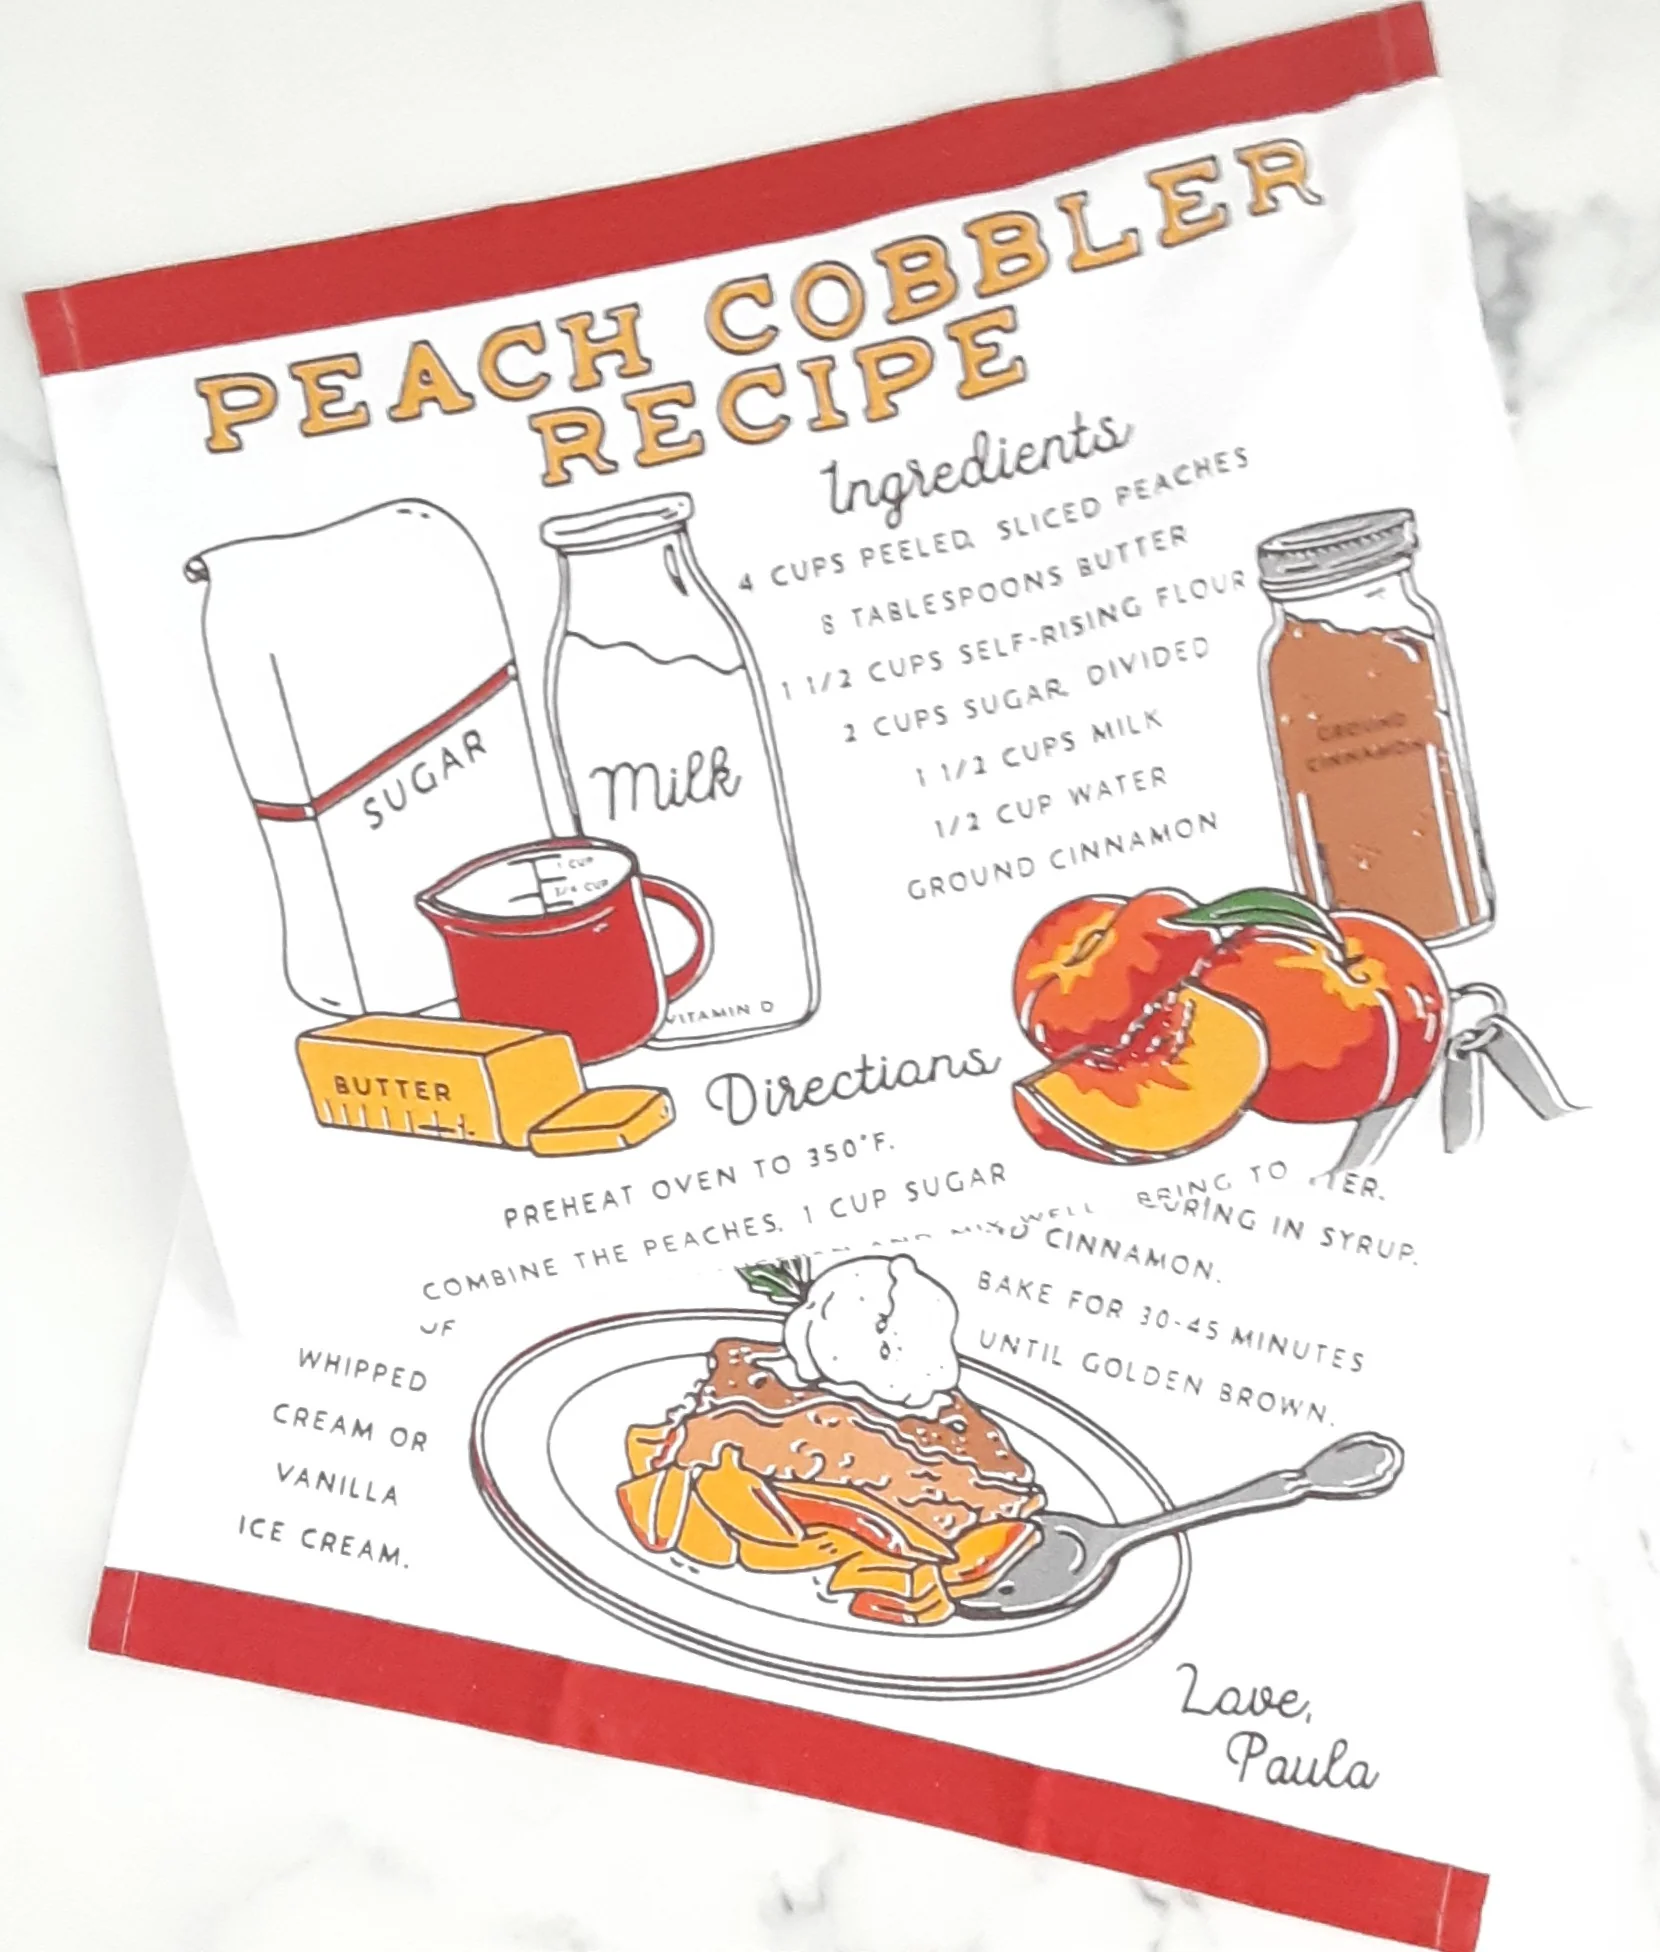 PEACH COBBLER
RECIPE
Ingredients
4 CUPS PEELED, SLICED PEACHES
8 TABLESPOONS BUTTER
1 1/2 CUPS SELF-RISING FLOUR
2 CUPS SUGAR, DIVIDED
1 1/2 CUPS MILK
1/2 CUP WATER
GROUND CINNAMON
SUGAR
Milk
1 CUP
3/4 CUP
VITAMIN D
BUTTER
GROUND
CINNAMON
Directions
PREHEAT OVEN TO 350°F.
COMBINE THE PEACHES, 1 CUP SUGAR
AND WELL BRING TO
IN SYRUP.
CINNAMON.
BAKE FOR 30-45 MINUTES
UNTIL GOLDEN BROWN.
WHIPPED
CREAM OR
VANILLA
ICE CREAM.
Love,
Paula